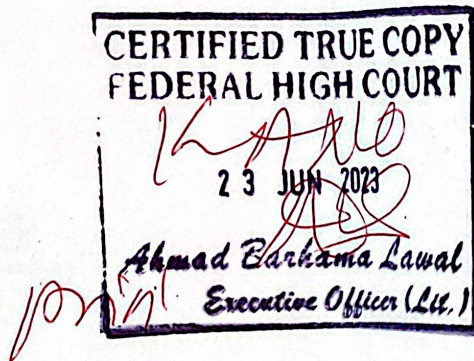 CERTIFIED TRUE COPY
FEDERAL HIGH COURT
KANO
23 JUN 2023
Ahmad Barhama Lawal
Executive Officer (Lit.)